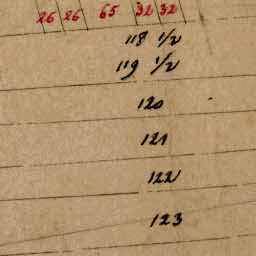 26 26 65 32 32
118 1/2
119 1/2
120
121
122
123